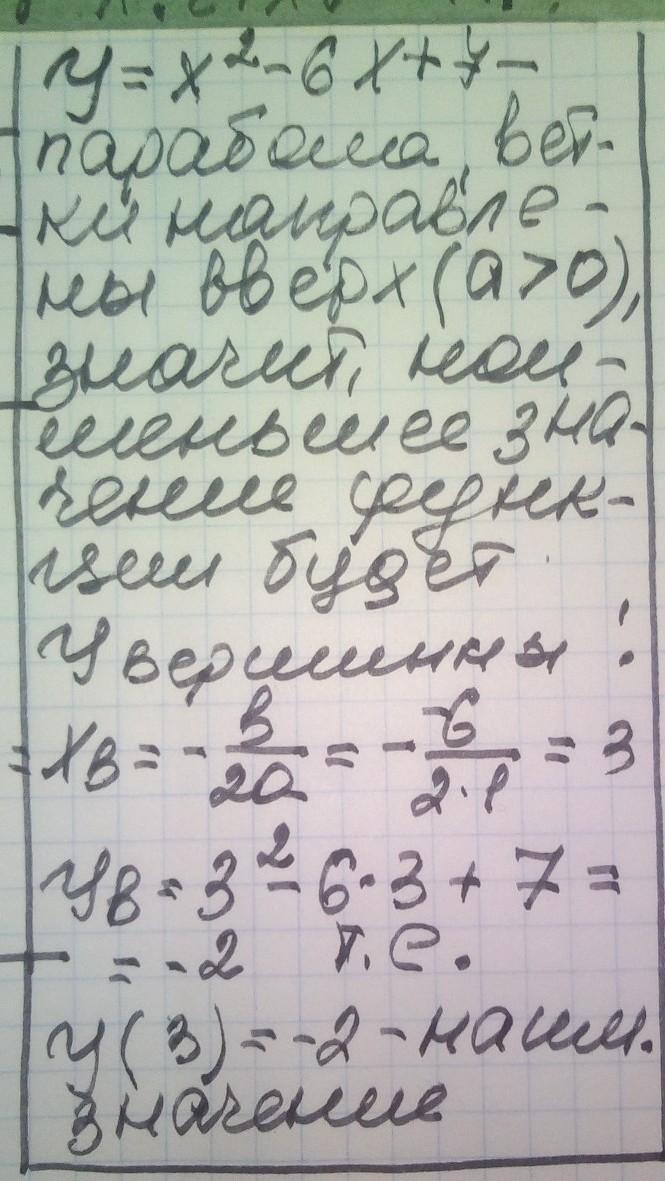 y = x² - 6x + 7 -
парабола, вет-
ки направле-
ны вверх (a > 0),
значит, наи-
меньшее зна-
чение функ-
ции будет
y вершины:
= xв = - b/2a = - -6/2·1 = 3
yв = 3² - 6·3 + 7 =
= -2 т.е.
y(3) = -2 - наим.
значение